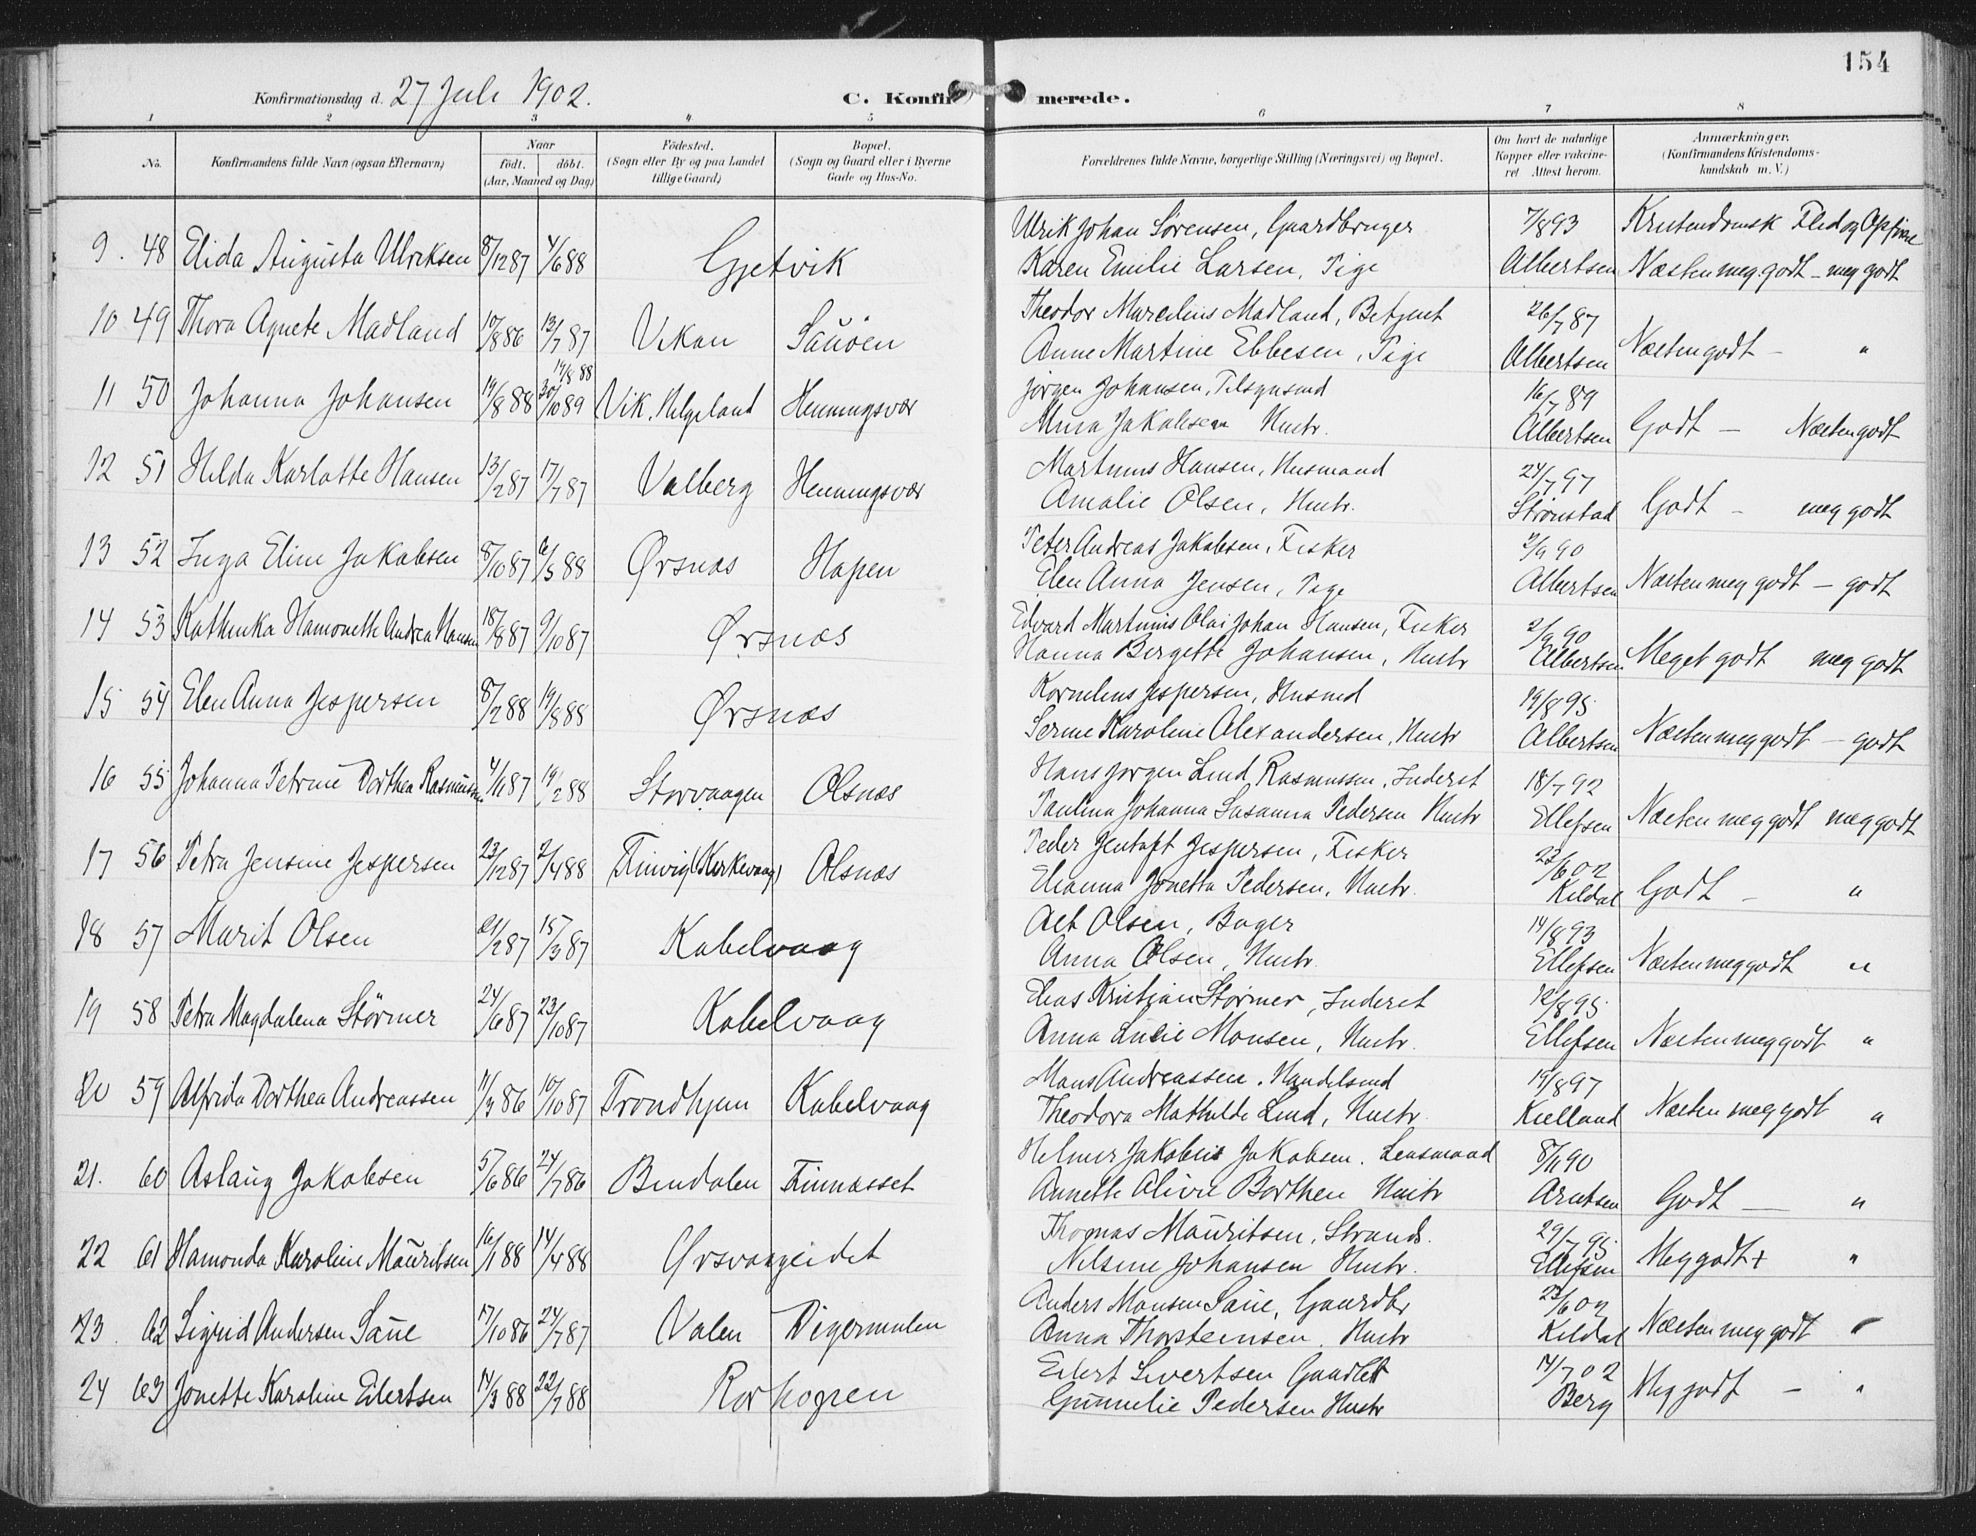 154
Konfirmationsdag d. 27 Juli 1902. C. Konfirmerede.
1 2 3 4 5 6 7 8
No. Konfirmandens fulde Navn (ogsaa Efternavn) Naar født. døbt. (Aar, Maaned og Dag) Fødested. (Sogn eller By og paa Landet tillige Gaard) Bopæl. (Sogn og Gaard eller i Byerne Gade og Hus-No. Forældrenes fulde Navne, borgerlige Stilling (Næringsvei) og Bopæl. Om havt de naturlige Kopper eller vakcineret Attest herom. Anmærkninger. (Konfirmandens Kristendomskundskab m. V.)
Ulrik Johan Sørensen, Gaardbruger 7/8 93 Kristendomsk Flid og Opførsel
9. 48 Elida Augusta Ulriksen 8/12 87 4/6 88 Gjetvik Karen Emilie Larsen, Pige Albertsen Næsten meg godt - meg godt
Theodor Marcelius Madland, Betjent 26/7 87
10 49 Thora Agnete Madland 10/8 86 13/7 87 Vikan Sauøen Anne Martine Ebbesen, Pige Albertsen Næsten godt - "
14/8 88
Jørgen Johansen, Tilsynsmd 16/7 89
11 50 Johanna Johansen 14/8 88 30/10 89 Vik. Helgeland Henningsvær Mina Jakobsen Hustr. Albertsen Godt - Næsten godt
Martinus Hansen, Husmand 24/7 97
12 51 Hilda Karlotte Hansen 13/2 87 17/7 87 Valberg Henningsvær Amalie Olsen, Hustr. Strønstad Godt - meg godt
Peter Andreas Jakobsen, Fisker 2/9 90
13 52 Inga Eline Jakobsen 8/10 87 6/5 88 Ørsnæs Hopen Elen Anna Jensen, Pige Albertsen Næsten meg godt - godt
Edvard Martinus Olai Johan Hansen, Fisker 2/9 90
14 53 Kathinka Hamonette Andrea Hansen 18/8 87 9/10 87 Ørsnæs Hanna Bergette Johansen, Hustr Albertsen Meget godt meg godt
Kornelius Jespersen, Husmd 19/8 95
15 54 Elen Anna Jespersen 8/2 88 19/8 88 Ørsnæs Serine Karoline Alexandersen, Hustr Albertsen Næsten meg godt - godt
Hans Jørgen Lind Rasmussen, Inderst 18/7 92
16 55 Johanna Petrine Dorthea Rasmussen 4/11 87 19/2 88 Storvaagen Olsnæs Paulina Johanna Susanna Pedersen Hustr Ellefsen Næsten meg godt meg godt
Peder Jentoft Jespersen, Fisker 23/6 02
17 56 Petra Jensine Jespersen 23/12 87 2/4 88 Finvig (Kirkevaag) Olsnæs Elianna Jonetta Pedersen, Hustr. Kildal Godt - "
Olsen, Bager 14/8 93
18 57 Marit Olsen 21/2 87 15/3 87 Kabelvaag Anna Olsen, Hustr. Ellefsen Næsten meg godt "
Elias Kristian Størmer, Inderst 12/8 95
19 58 Petra Magdalena Størmer 24/6 87 23/10 87 Kabelvaag Anna Lucie Monsen, Hustr. Ellefsen Næsten meg godt "
Mons Andreassen, Handelsmd 19/8 97
20 59 Alfrida Dorthea Andreassen 11/3 86 10/10 87 Trondhjem Kabelvaag Theodora Mathilde Lind, Hustr. Kielland Næsten meg godt "
Helmer Jakobsen Lensmand 8/11 90
21. 60 Aslaug Jakobsen 5/6 86 24/7 86 Bindalen Finnæsset Annette Olive Borthen Hustr Arntsen Godt - "
Thomas Mauritsen, Strands. 29/7 95
22 61 Hamonda Karoline Mauritsen 16/1 88 14/4 88 Ørsvaageidet Nilsine Johansen Hustr. Ellefsen Meg godt + "
Anders Monsen Saue, Gaardbr 23/6 02
23. 62 Sigrid Andersen Saue 17/10 86 24/7 87 Valen Digermulen Anna Thorsteinsen, Hustr Kildal Næsten meg godt "
Eilert Sivertsen 14/7 02
24 63 Jonette Karoline Eilertsen 14/3 88 22/7 88 Rorhopen Gunnelie Pedersen Hustr Berg Meg godt - "